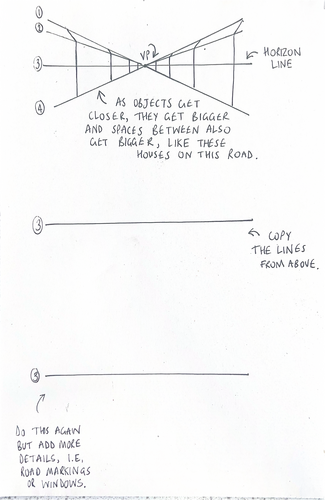 ①
②
VP
③
HORIZON
LINE
④
AS OBJECTS GET
CLOSER, THEY GET BIGGER
AND SPACES BETWEEN ALSO
GET BIGGER, LIKE THESE
HOUSES ON THIS ROAD.
③
COPY
THE LINES
FROM ABOVE.
③
DO THIS AGAIN
BUT ADD MORE
DETAILS, I.E.
ROAD MARKINGS
OR WINDOWS.